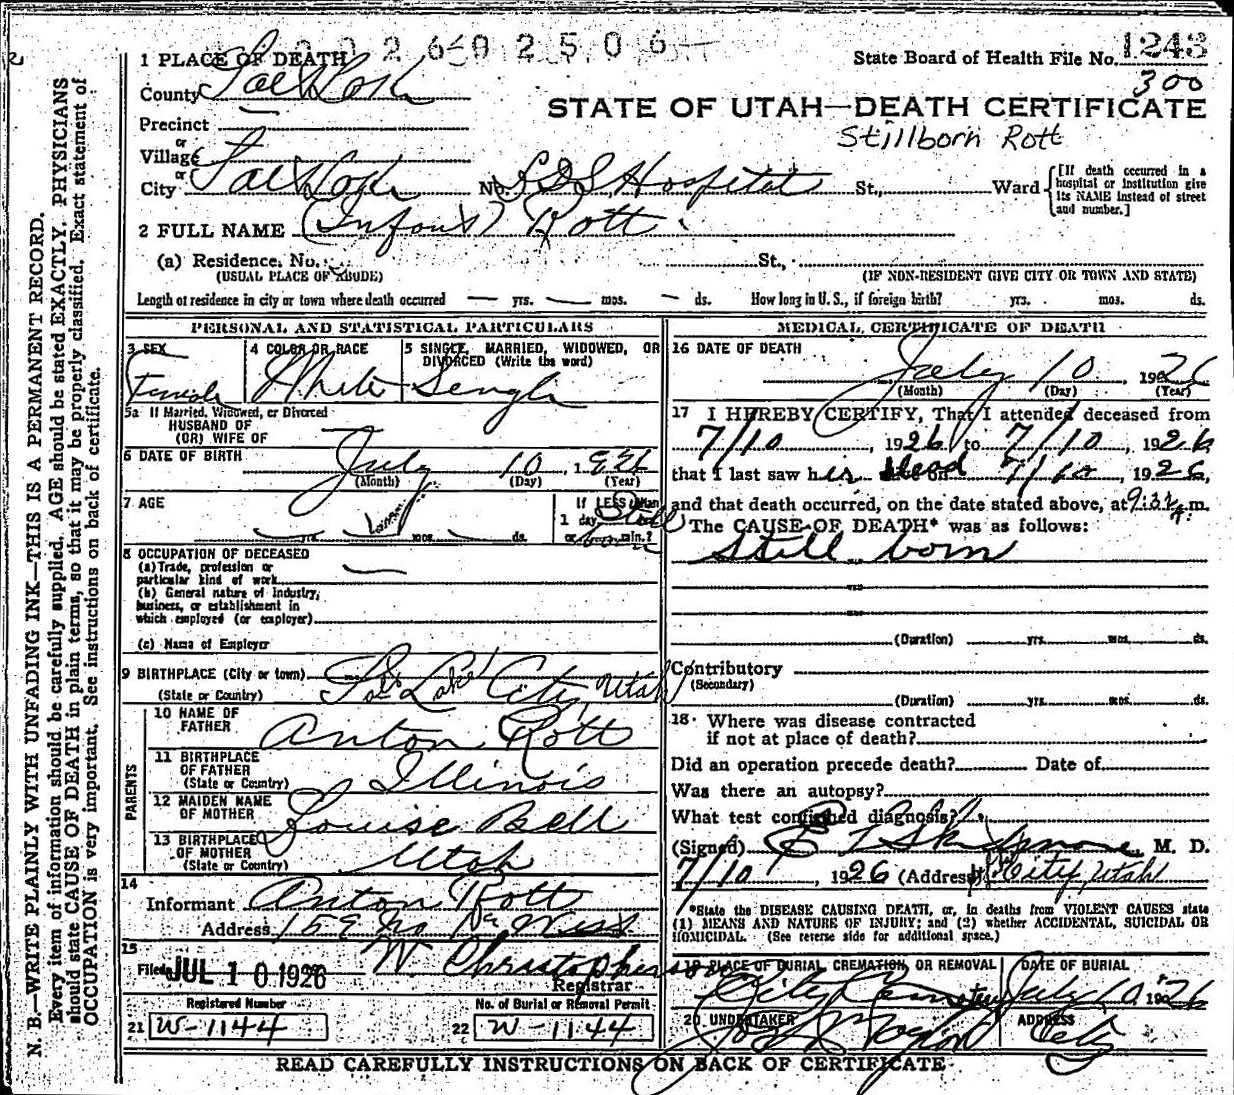 1243
State Board of Health File No.
300
1 PLACE OF DEATH
County Salt Lake
STATE OF UTAH—DEATH CERTIFICATE
Stillborn Rott
Precinct
or
Village
or
City Salt Lake No. LDS Hospital St., Ward [If death occurred in a hospital or institution give its NAME instead of street and number.]
2 FULL NAME (Infant) Rott
(a) Residence, No. St.,
(USUAL PLACE OF ABODE) (IF NON-RESIDENT GIVE CITY OR TOWN AND STATE)
Length of residence in city or town where death occurred — yrs. — mos. — ds. How long in U. S., if foreign birth? yrs. mos. ds.
PERSONAL AND STATISTICAL PARTICULARS
3 SEX
Female
4 COLOR OR RACE
White
5 SINGLE, MARRIED, WIDOWED, OR DIVORCED (Write the word)
Single
5a If Married, Widowed, or Divorced
HUSBAND OF
(OR) WIFE OF
6 DATE OF BIRTH July 10, 1926
(Month) (Day) (Year)
7 AGE
yrs. mos. ds.
If LESS than
1 day
or min.?
Still born
8 OCCUPATION OF DECEASED
(a) Trade, profession or
particular kind of work
(b) General nature of Industry,
business, or establishment in
which employed (or employer)
(c) Name of Employer
9 BIRTHPLACE (City or town) Salt Lake City, Utah
(State or Country)
PARENTS
10 NAME OF
FATHER Anton Rott
11 BIRTHPLACE
OF FATHER Illinois
(State or Country)
12 MAIDEN NAME
OF MOTHER Louise Bell
13 BIRTHPLACE
OF MOTHER Utah
(State or Country)
14
Informant Anton Rott
Address 159 No.
15
Filed JUL 10 1926 W. Christopherson
Registrar
Registered Number No. of Burial or Removal Permit
21 W-1144 22 W-1144
MEDICAL CERTIFICATE OF DEATH
16 DATE OF DEATH
July 10, 1926
(Month) (Day) (Year)
17 I HEREBY CERTIFY, That I attended deceased from
7/10, 1926 to 7/10, 1926
that I last saw her dead on 7/10 1926,
and that death occurred, on the date stated above, at 9:32 A.m.
The CAUSE OF DEATH* was as follows:
Still born
(Duration) yrs. mos. ds.
Contributory
(Secondary)
(Duration) yrs. mos. ds.
18 Where was disease contracted
if not at place of death?
Did an operation precede death? Date of
Was there an autopsy?
What test confirmed diagnosis?
(Signed) E T Skidmore, M. D.
7/10, 1926 (Address) City, Utah
*State the DISEASE CAUSING DEATH, or, in deaths from VIOLENT CAUSES state
(1) MEANS AND NATURE OF INJURY; and (2) whether ACCIDENTAL, SUICIDAL OR
HOMICIDAL. (See reverse side for additional space.)
19 PLACE OF BURIAL CREMATION, OR REMOVAL DATE OF BURIAL
City Cemetery July 10 1926
20 UNDERTAKER ADDRESS
City
READ CAREFULLY INSTRUCTIONS ON BACK OF CERTIFICATE
N. B.—WRITE PLAINLY WITH UNFADING INK—THIS IS A PERMANENT RECORD.
Every item of information should be carefully supplied. AGE should be stated EXACTLY. PHYSICIANS
should state CAUSE OF DEATH in plain terms, so that it may be properly classified. Exact statement of
OCCUPATION is very important. See instructions on back of certificate.